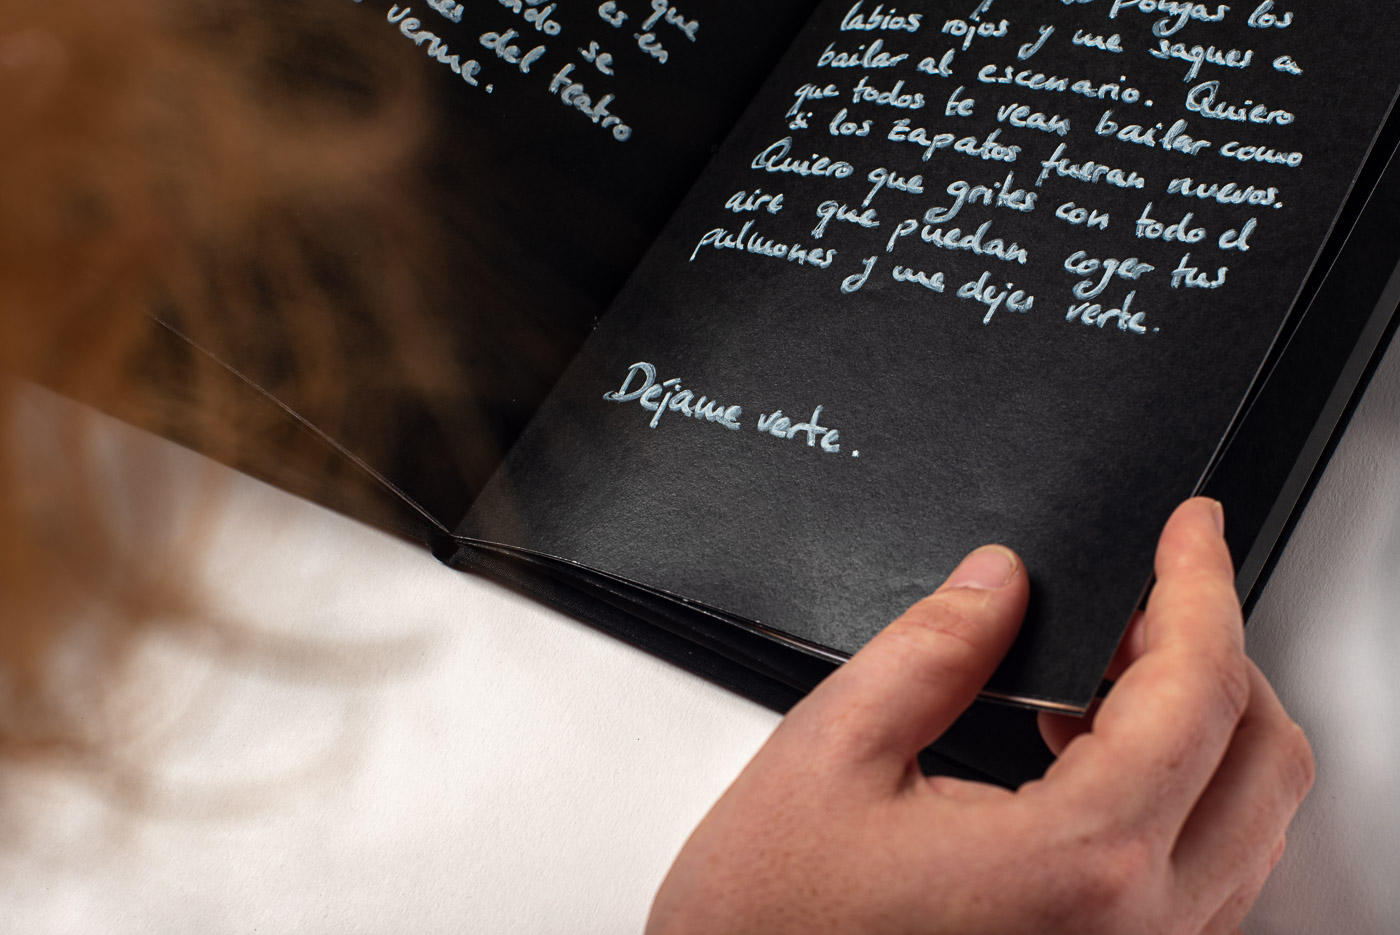 es que
se en
es del teatro
verme.
pongas los
labios rojos y me saques a
bailar al escenario. Quiero
que todos te vean bailar como
si los zapatos fueran nuevos.
Quiero que grites con todo el
aire que puedan coger tus
pulmones y me dejes verte.
Déjame verte.